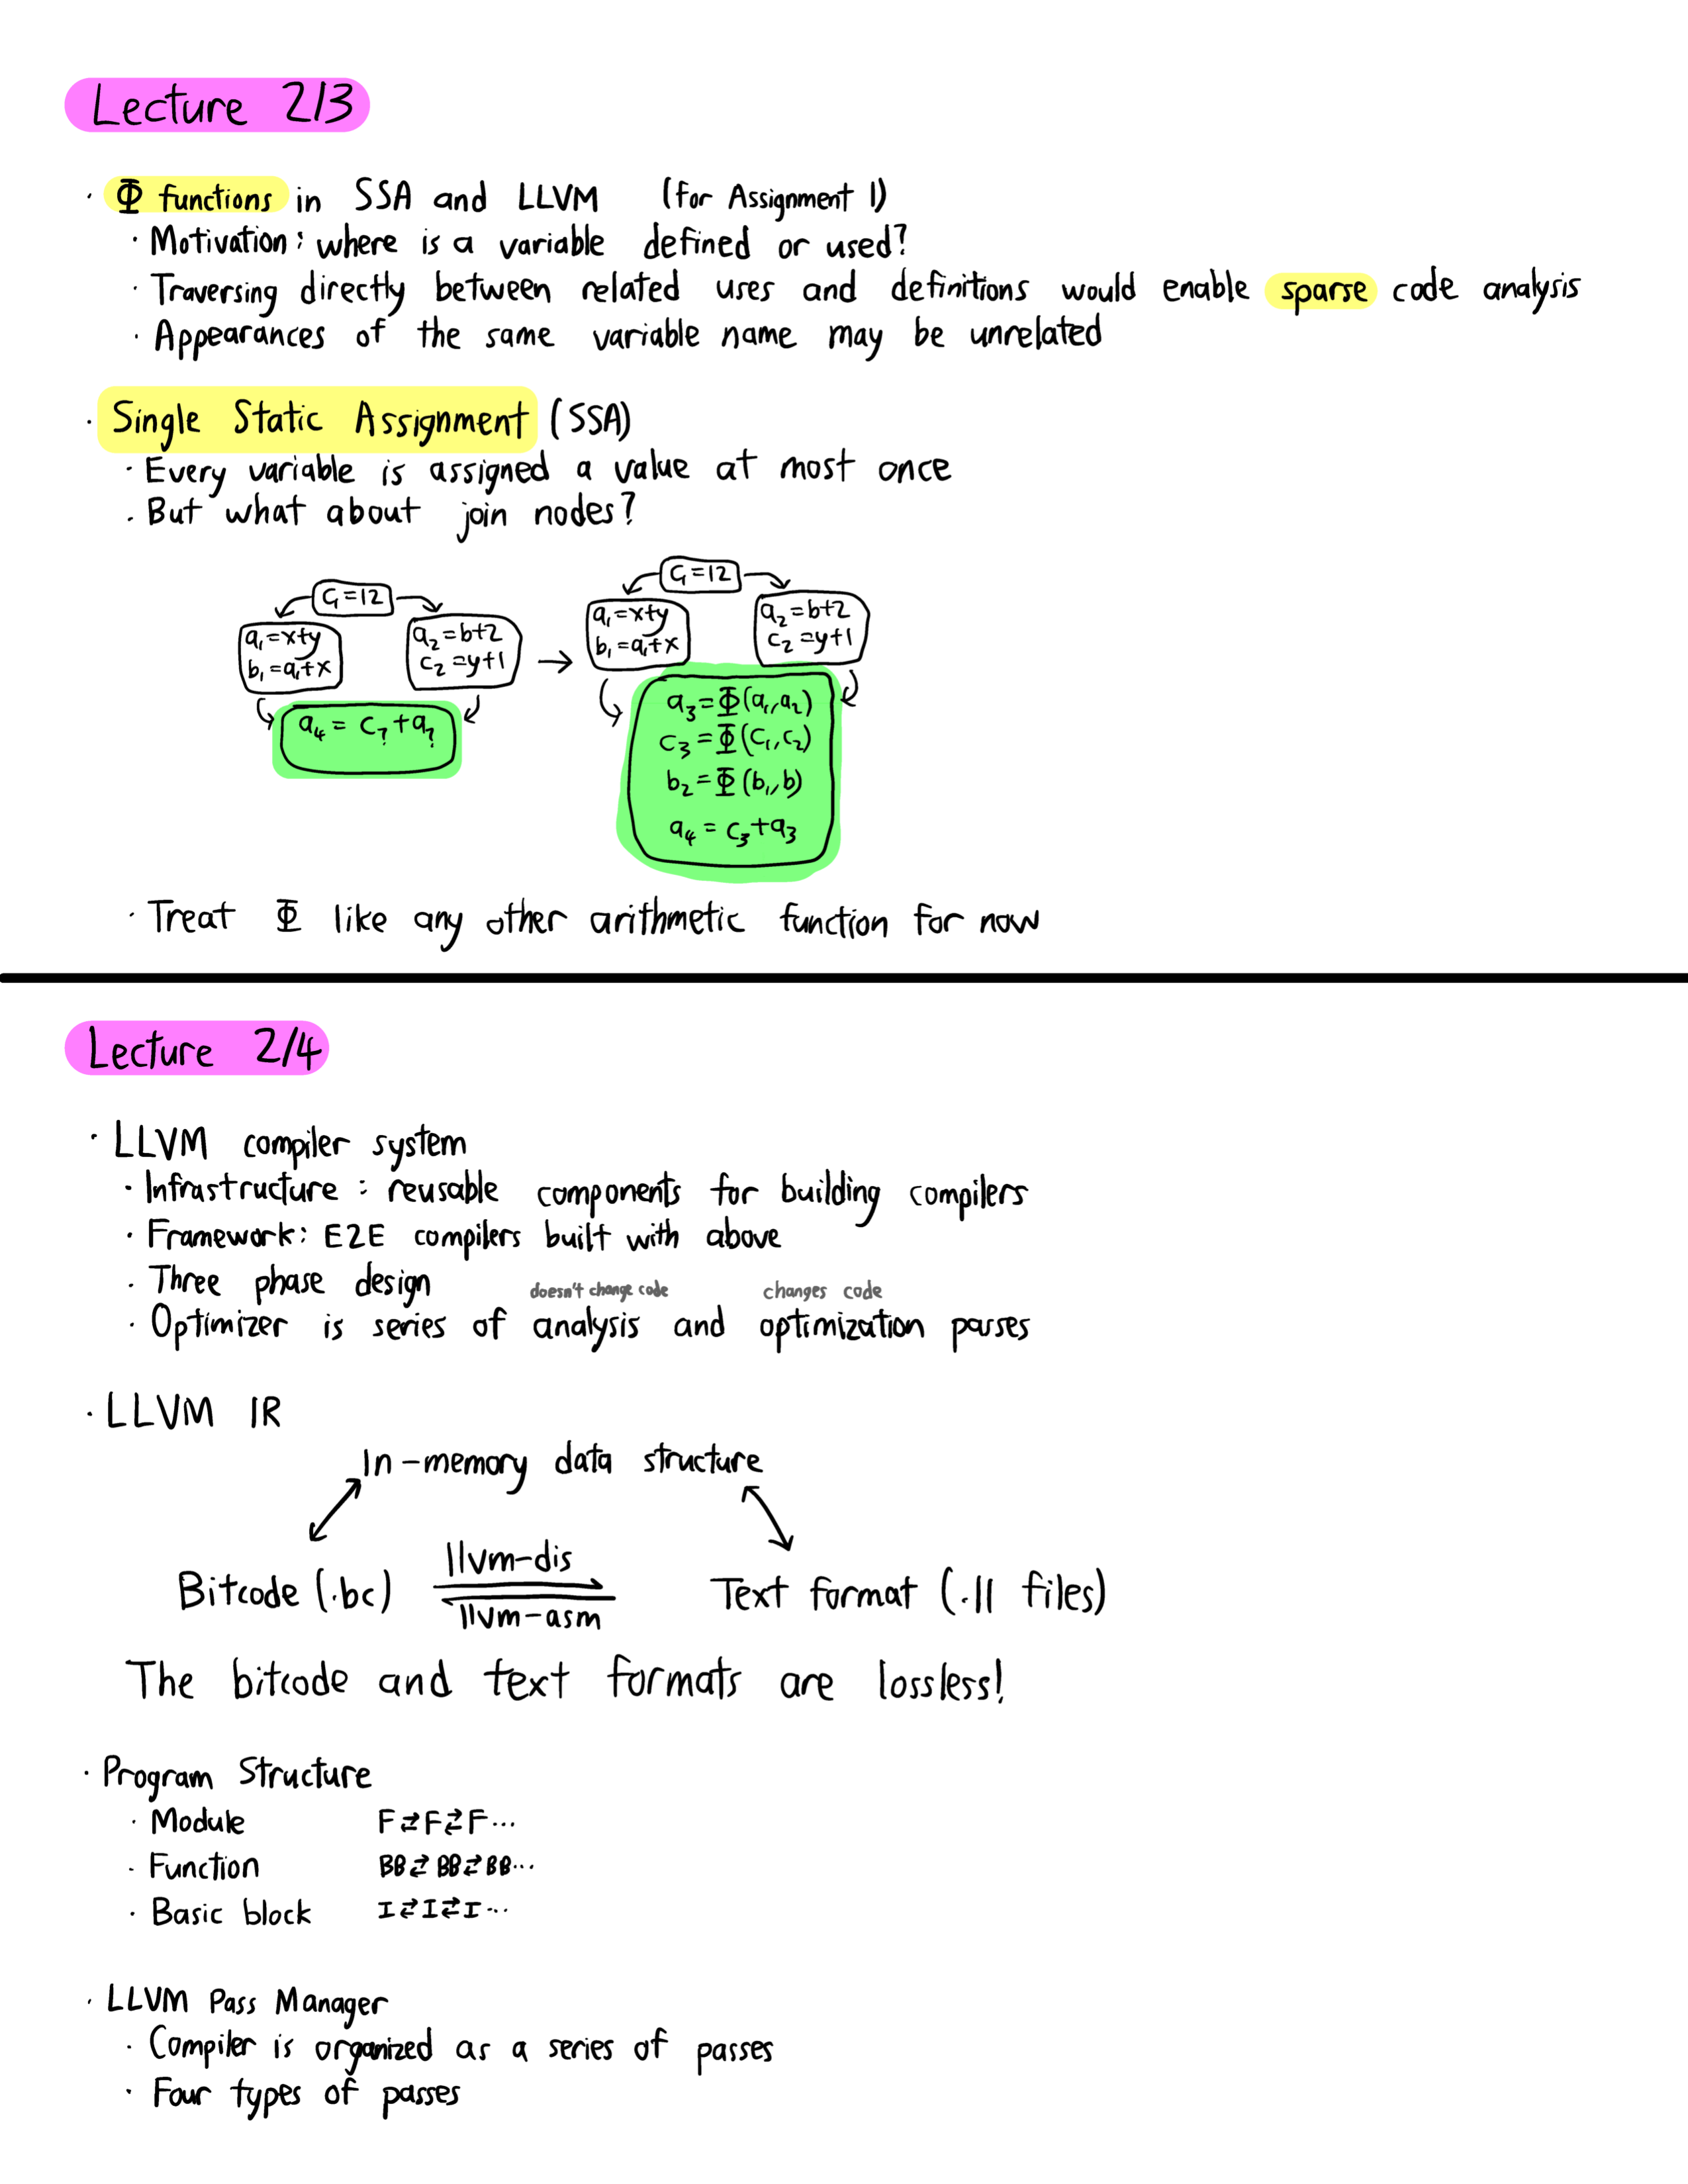 Lecture 2/3
· Φ functions in SSA and LLVM (for Assignment 1)
· Motivation: where is a variable defined or used?
· Traversing directly between related uses and definitions would enable sparse code analysis
· Appearances of the same variable name may be unrelated
· Single Static Assignment (SSA)
· Every variable is assigned a value at most once
· But what about join nodes?
c₁=12
a₁=x+y
b₁=a₁+x
a₂=b+2
c₂=y+1
a₄ = c?+a?
→
c₁=12
a₁=x+y
b₁=a₁+x
a₂=b+2
c₂=y+1
a₃=Φ(a₁,a₂)
c₃=Φ(c₁,c₂)
b₂=Φ(b₁,b)
a₄=c₃+a₃
· Treat Φ like any other arithmetic function for now
Lecture 2/4
· LLVM compiler system
· Infrastructure: reusable components for building compilers
· Framework: E2E compilers built with above
· Three phase design
doesn't change code changes code
· Optimizer is series of analysis and optimization passes
· LLVM IR
In-memory data structure
llvm-dis
Bitcode (.bc) Text format (.ll files)
llvm-asm
The bitcode and text formats are lossless!
· Program Structure
· Module F⇄F⇄F...
· Function BB⇄BB⇄BB...
· Basic block I⇄I⇄I...
· LLVM Pass Manager
· Compiler is organized as a series of passes
· Four types of passes